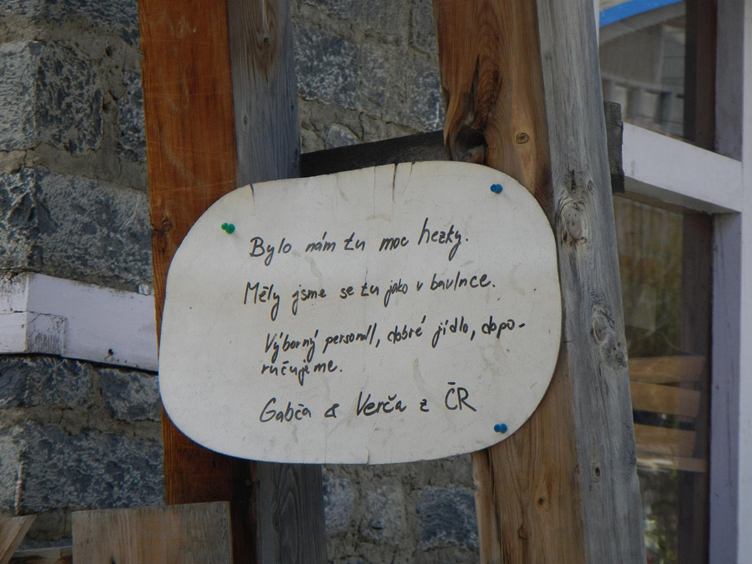 Bylo nám tu moc hezky.
Měly jsme se tu jako v bavlnce.
Výborný personál, dobré jídlo, dopo-
ručujeme.
Gabča & Verča z ČR